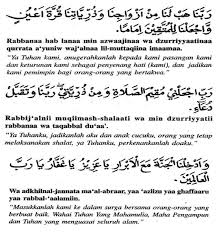 رَبَّنَا هَبْ لَنَا مِنْ أَزْوَاجِنَا وَذُرِّيَّاتِنَا قُرَّةَ أَعْيُنٍ
وَاجْعَلْنَا لِلْمُتَّقِينَ إِمَامًا.
Rabbanaa hab lanaa min azwaajinaa wa dzurriyyaatinaa
qurrata a'yuniw waj'alnaa lil-muttaqiina imaamaa.
"Ya Tuhan kami, anugerahkanlah kepada kami pasangan kami
dan keturunan kami sebagai penyenang hati (kami), dan jadikan
kami pemimpin bagi orang-orang yang bertakwa."
رَبِّ اجْعَلْنِي مُقِيمَ الصَّلَاةِ وَمِنْ ذُرِّيَّتِي رَبَّنَا وَتَقَبَّلْ
دُعَاءِ.
Rabbij'alnii muqiimash-shalaati wa min dzurriyyatii
rabbanaa wa taqabbal du'aa'.
"Ya Tuhanku, jadikanlah aku dan anak cucuku, orang yang tetap
melaksanakan shalat, ya Tuhanku, perkenankanlah doaku."
وَأَدْخِلْنَا الْجَنَّةَ مَعَ الْأَبْرَارِ يَا عَزِيزُ يَا غَفَّارُ يَا رَبَّ
الْعَالَمِينَ.
Wa adkhilnal-jannata ma'al-abraar, yaa 'aziizu yaa ghaffaaru
yaa rabbal-'aalamiin.
"Masukkanlah kami ke dalam surga bersama orang-orang yang
berbuat baik. Wahai Tuhan Yang Mahamulia, Maha Pengampun
dan Tuhan yang menguasai seluruh alam."